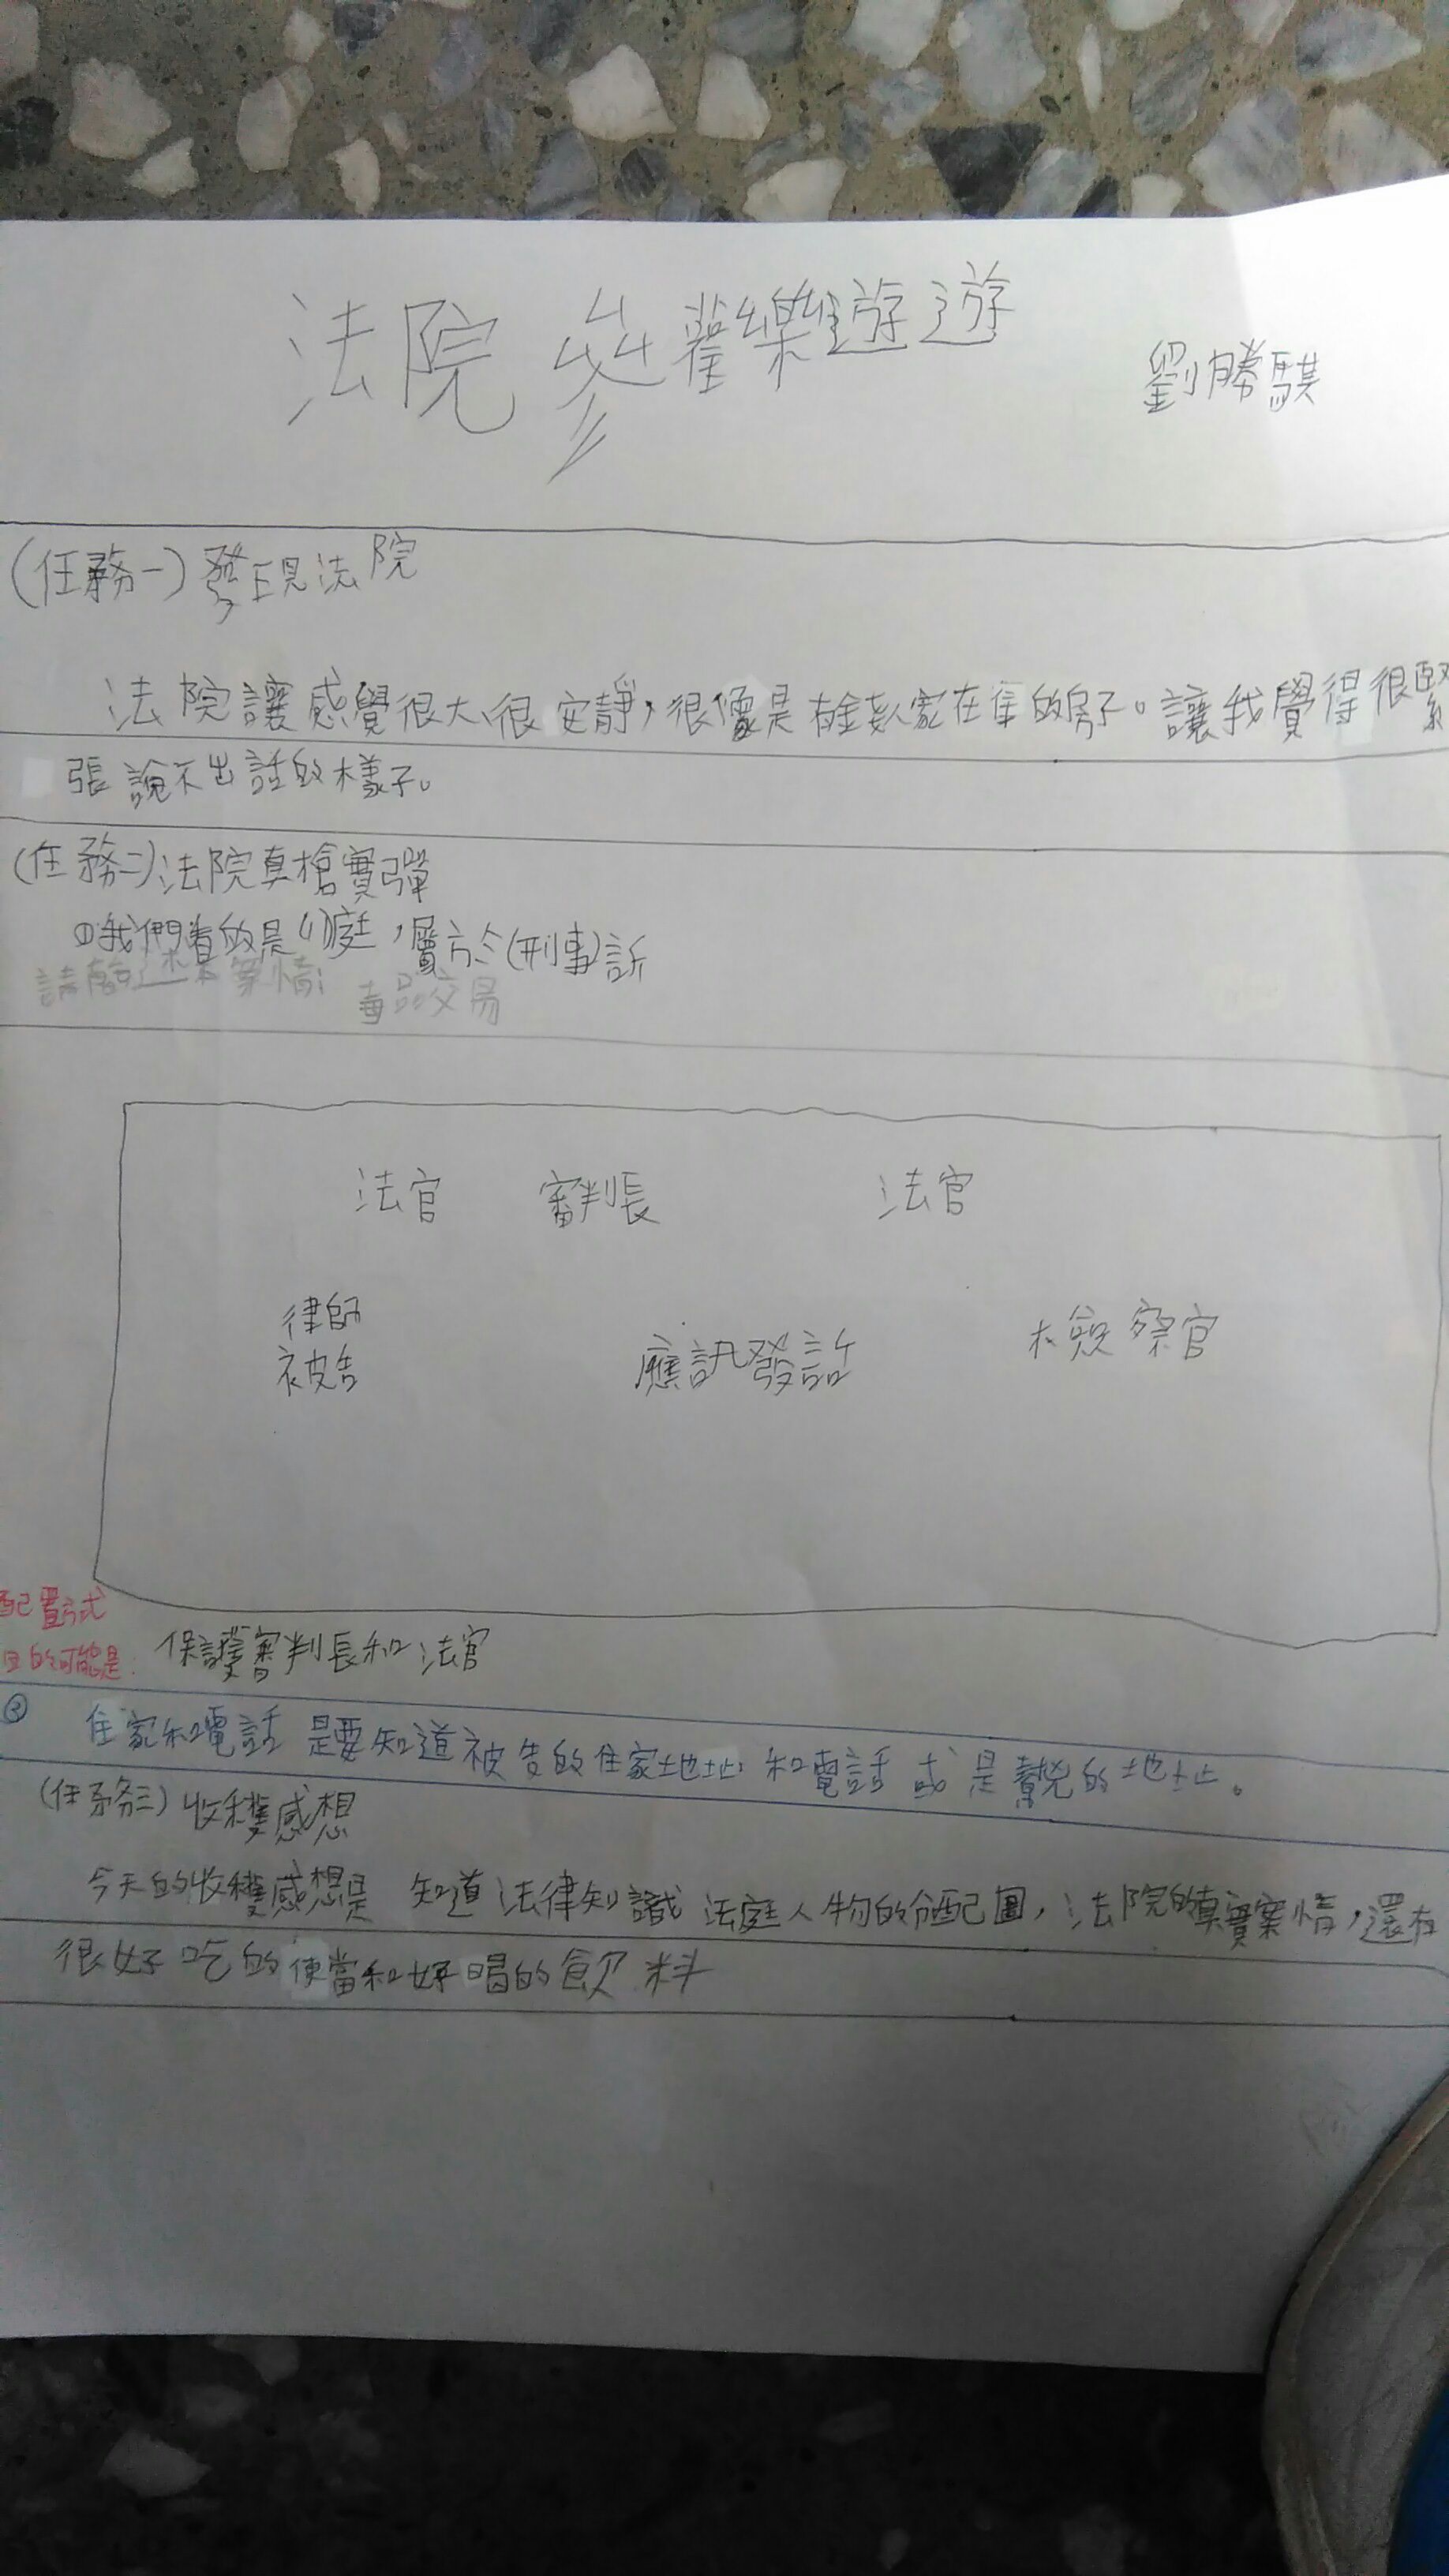 法院參觀樂遊遊
劉勝騏
(任務一)發現法院
法院讓感覺很大、很安靜,很像是有錢人家在住的房子。讓我覺得很緊
張說不出話的樣子。
(任務二)法院真槍實彈
①我們看的是(1)庭,屬於(刑事)訴
請簡述案情: 毒品交易
法官 審判長 法官
律師
被告 應訊發話 檢察官
配置方式
目的可能是: 保護審判長和法官
③ 住家和電話是要知道被告的住家地址和電話或是親的地址。
(任務三)收穫感想
今天的收穫感想是 知道法律知識 法庭人物的分配圖,法院的真實案情,還有
很好吃的便當和好喝的飲料